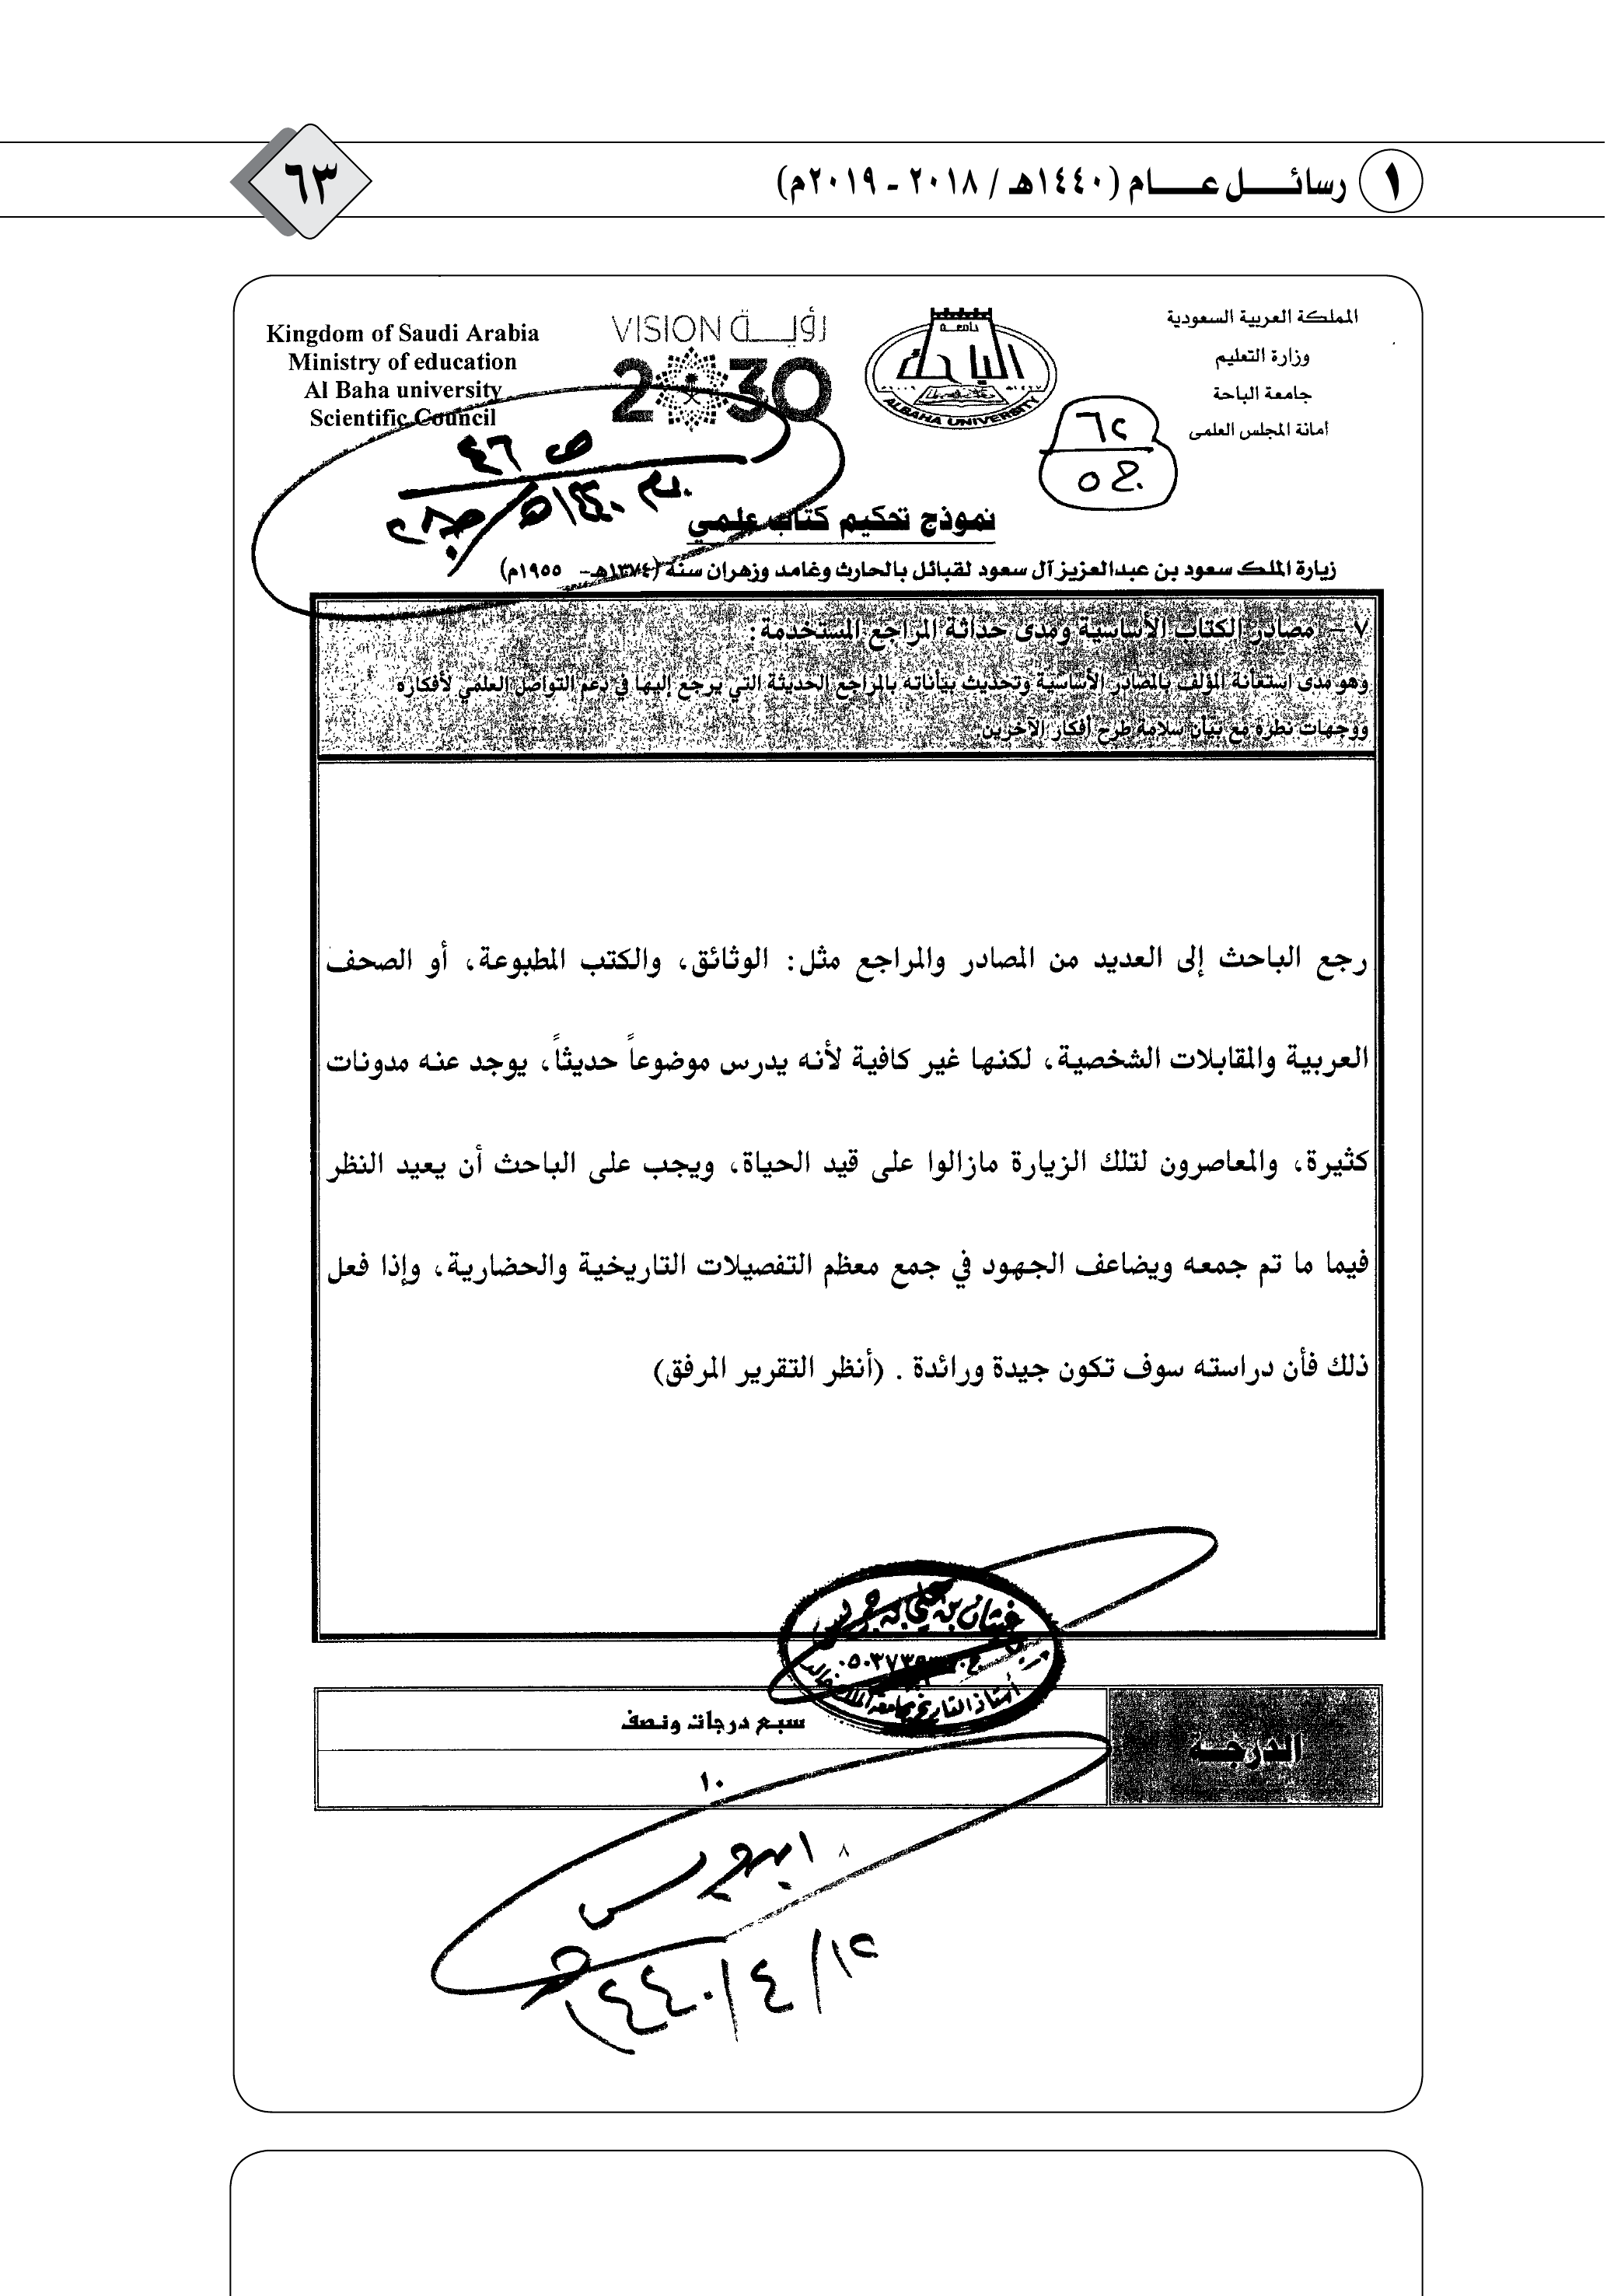 ١ رسائل عام (١٤٤٠هـ / ٢٠١٨ - ٢٠١٩م)
٦٣
المملكة العربية السعودية
وزارة التعليم
جامعة الباحة
أمانة المجلس العلمي
جامعة
الباحة
ALBAHA UNIVERSITY
VISION رؤيــة
2030
Kingdom of Saudi Arabia
Ministry of education
Al Baha university
Scientific Council
٦٢
ص ٤٦
نموذج تحكيم كتاب علمي
زيارة الملك سعود بن عبدالعزيز آل سعود لقبائل بالحارث وغامد وزهران سنة (١٣٧٤هـ- ١٩٥٥م)
٧ – مصادر الكتاب الأساسية ومدى حداثة المراجع المستخدمة:
وهو مدى استعانة المؤلف بالمصادر الأساسية وتحديث بياناته بالمراجع الحديثة التي يرجع إليها في دعم التواصل العلمي لأفكاره
ووجهات نظره مع بيان سلامة طرح أفكار الآخرين.
رجع الباحث إلى العديد من المصادر والمراجع مثل: الوثائق، والكتب المطبوعة، أو الصحف
العربية والمقابلات الشخصية، لكنها غير كافية لأنه يدرس موضوعاً حديثاً، يوجد عنه مدونات
كثيرة، والمعاصرون لتلك الزيارة مازالوا على قيد الحياة، ويجب على الباحث أن يعيد النظر
فيما ما تم جمعه ويضاعف الجهود في جمع معظم التفصيلات التاريخية والحضارية، وإذا فعل
ذلك فأن دراسته سوف تكون جيدة ورائدة . (أنظر التقرير المرفق)
غيثان بن علي بن جريس
أستاذ التاريخ بجامعة الملك خالد
الدرجــة
سبع درجات ونصف
١٠
١٢/٤/١٤٤٠